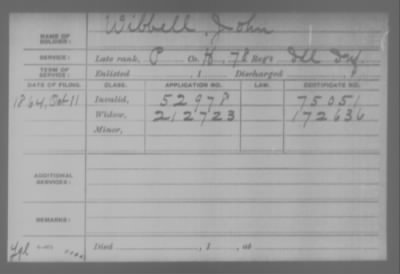 NAME OF SOLDIER: Wibbell, John
SERVICE: Late rank, P Co. H, 78 Reg't Ill Inf.
TERM OF SERVICE: Enlisted , 1 Discharged , 1
DATE OF FILING. CLASS. APPLICATION NO. LAW. CERTIFICATE NO.
1864, Oct 11 Invalid, 52978 75051
Widow, 212723 172636
Minor,
ADDITIONAL SERVICES:
REMARKS:
Died , 1 , at